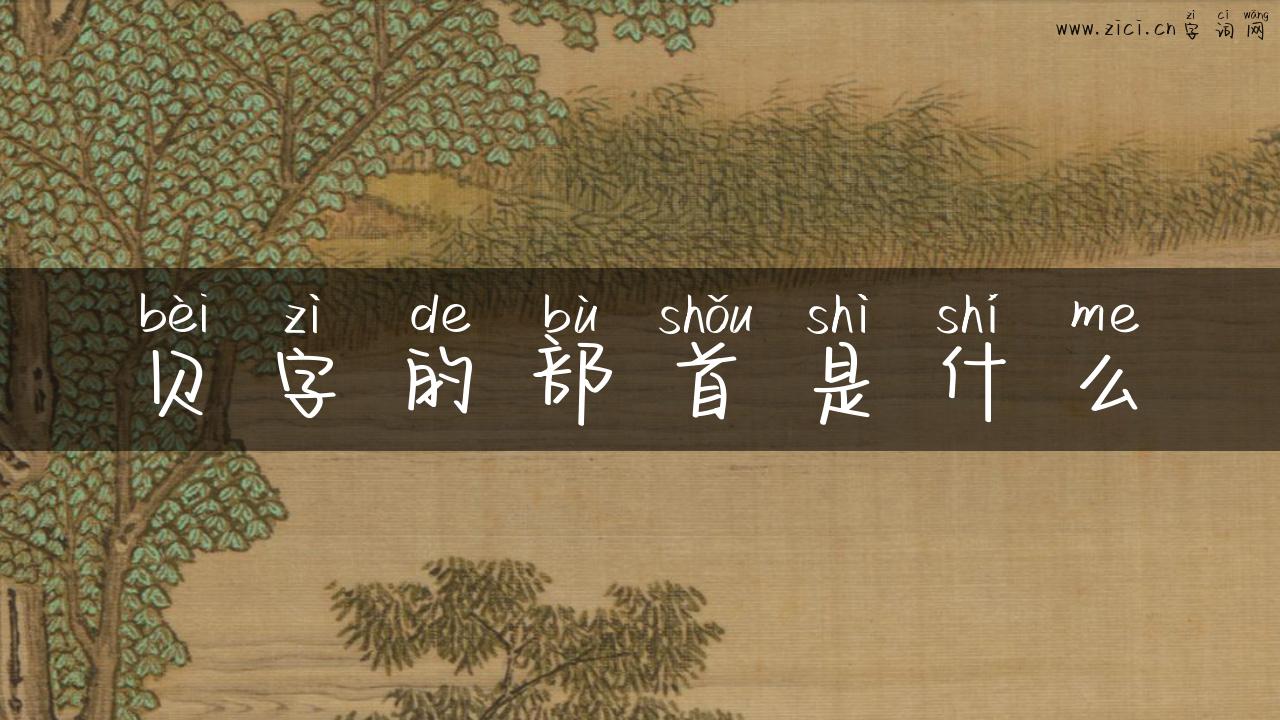 zì cí wǎng
www.zici.cn字词网
bèi zì de bù shǒu shì shí me
贝字的部首是什么